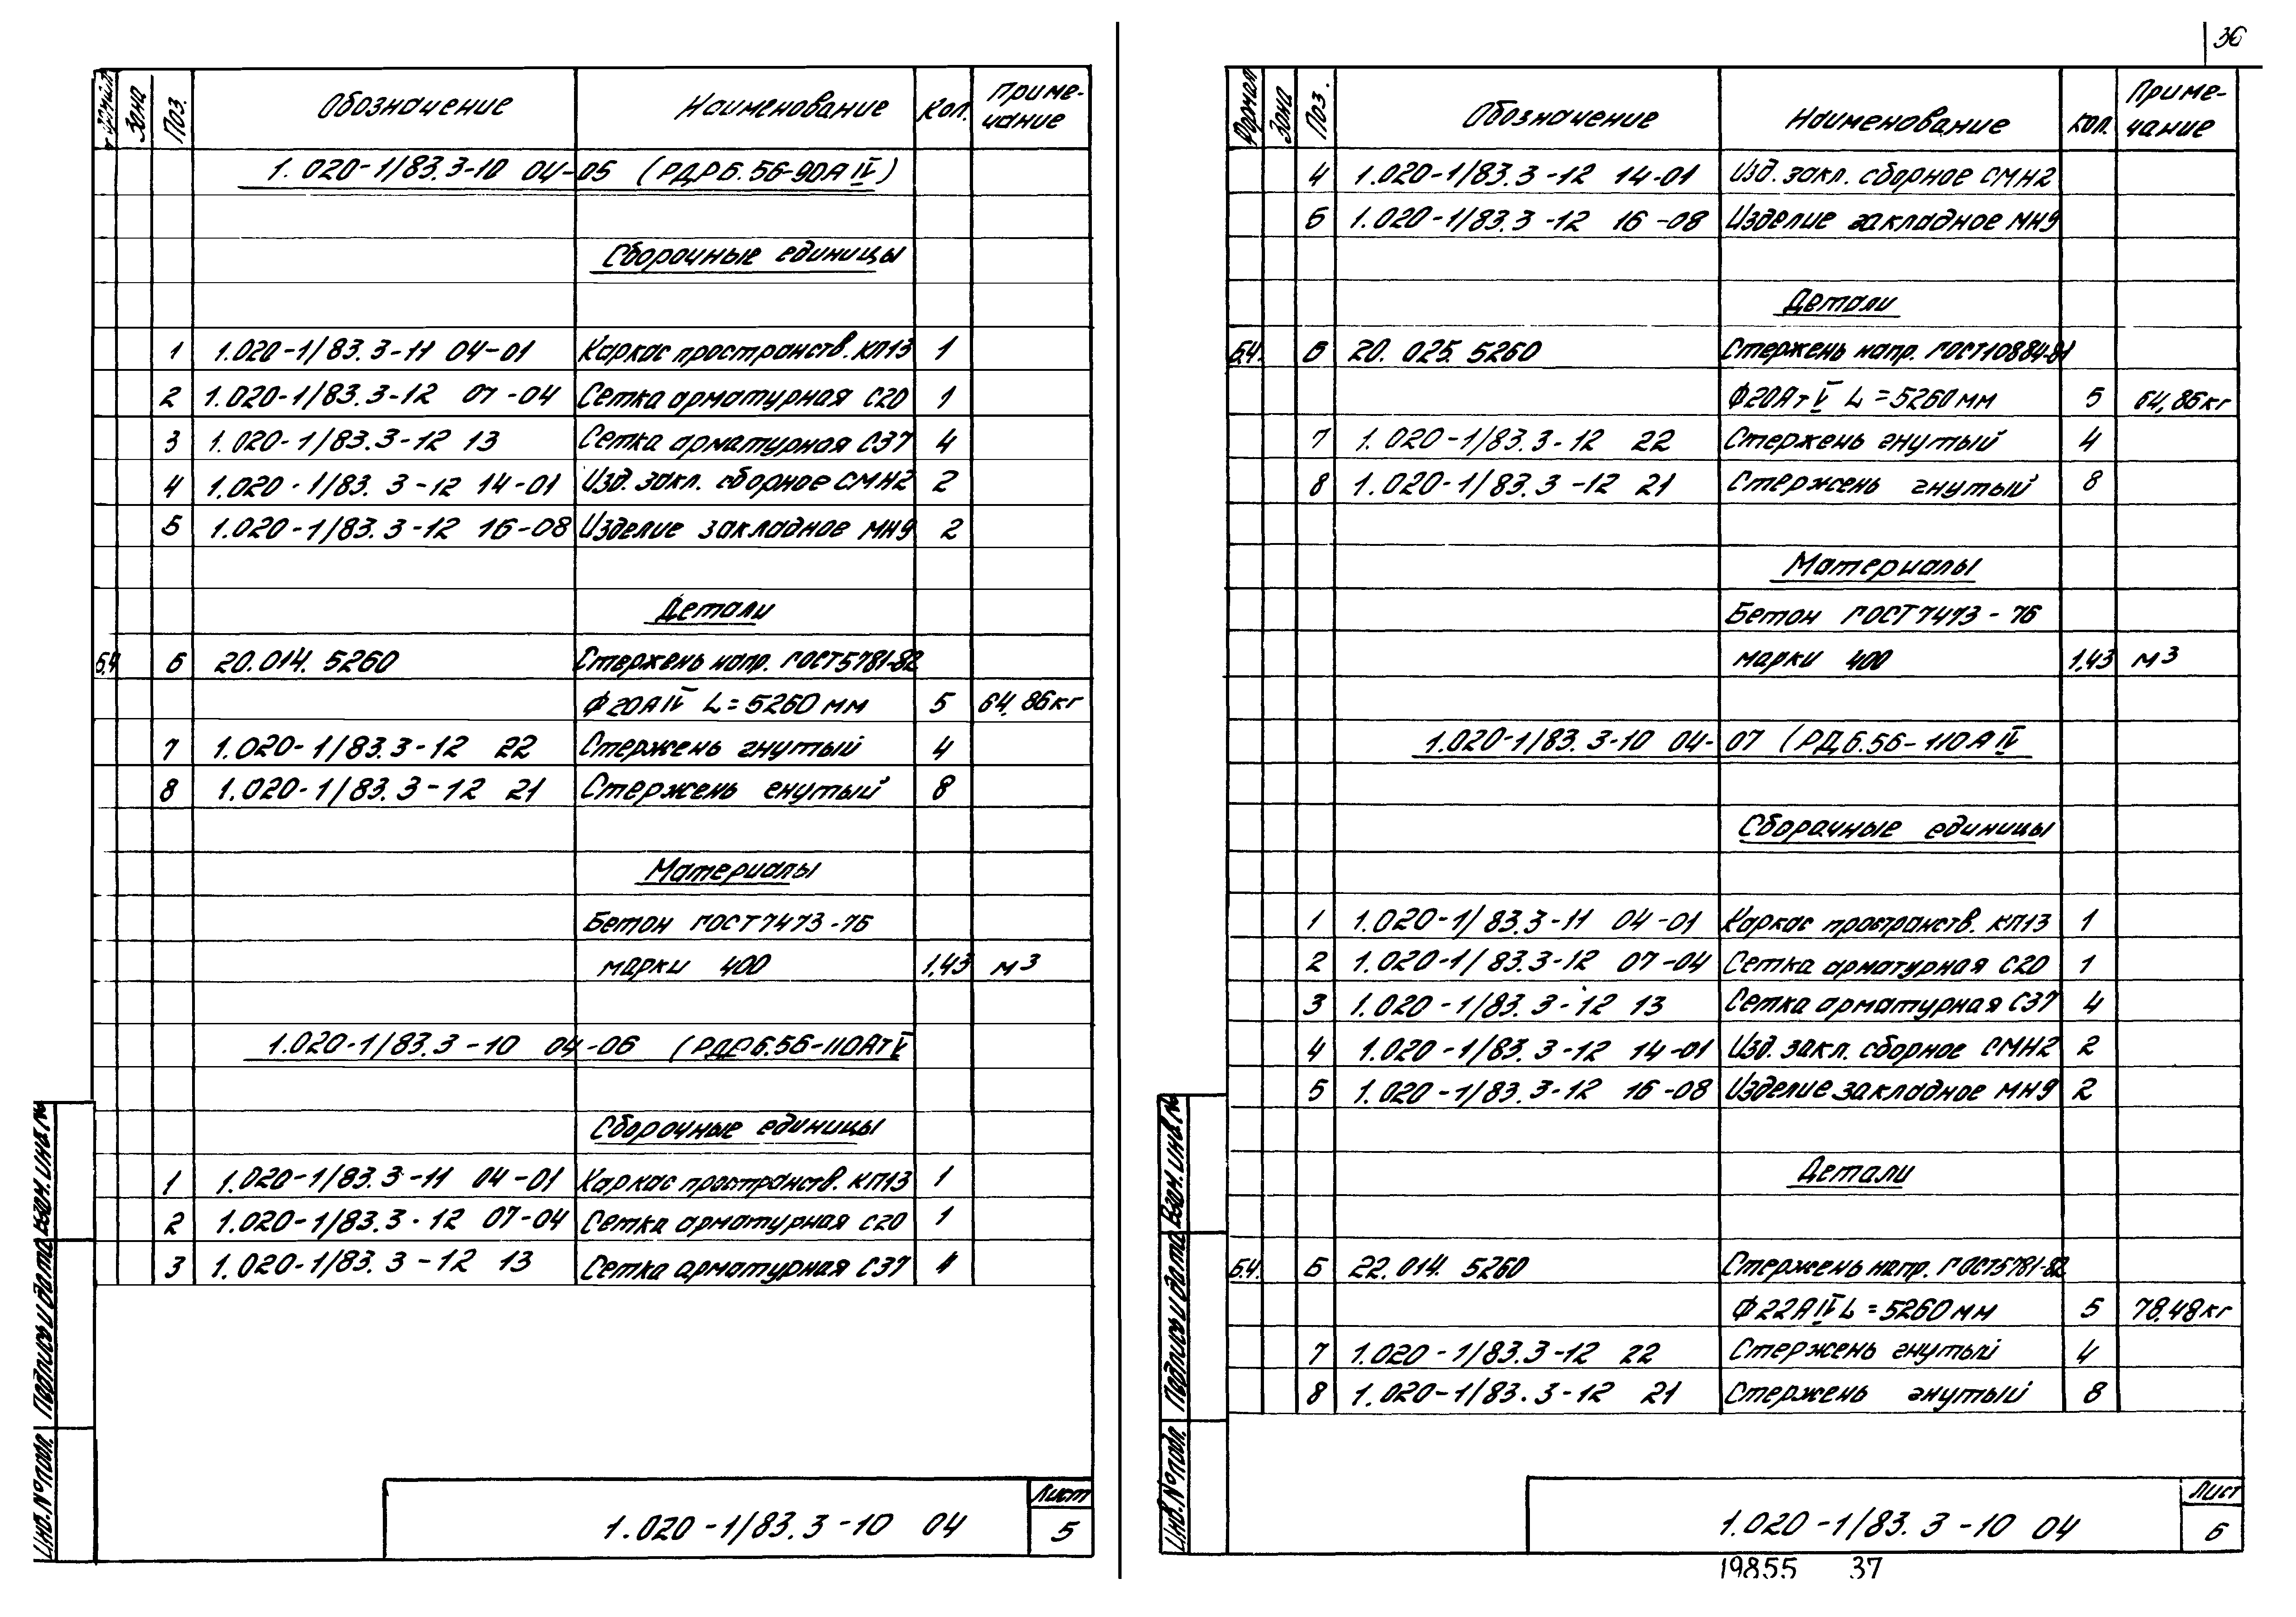 36
Формат Зона Поз. Обозначение Наименование Кол. Приме-
чание
1.020-1/83.3-10 04-05 (РДР6.56-90АIV)
Сборочные единицы
1 1.020-1/83.3-11 04-01 Каркас пространств. КП13 1
2 1.020-1/83.3-12 07-04 Сетка арматурная С20 1
3 1.020-1/83.3-12 13 Сетка арматурная С37 4
4 1.020-1/83.3-12 14-01 Изд. закл. сборное СМН2 2
5 1.020-1/83.3-12 16-08 Изделие закладное МН9 2
Детали
Б.Ч. 6 20.014.5260 Стержень напр. ГОСТ5781-82
Ф20АIV L=5260мм 5 64,86кг
7 1.020-1/83.3-12 22 Стержень гнутый 4
8 1.020-1/83.3-12 21 Стержень гнутый 8
Материалы
Бетон ГОСТ7473-76
марки 400 1,43 м3
1.020-1/83.3-10 04-06 (РДР6.56-110АтV
Сборочные единицы
1 1.020-1/83.3-11 04-01 Каркас пространств. КП13 1
2 1.020-1/83.3-12 07-04 Сетка арматурная С20 1
3 1.020-1/83.3-12 13 Сетка арматурная С37 4
Инв.№подл. Подпись и дата Взам.инв.№
1.020-1/83.3-10 04 Лист
5
Формат Зона Поз. Обозначение Наименование Кол. Приме-
чание
4 1.020-1/83.3-12 14-01 Изд. закл. сборное СМН2
5 1.020-1/83.3-12 16-08 Изделие закладное МН9
Детали
Б.Ч. 6 20.025.5260 Стержень напр. ГОСТ10884-81
Ф20АтV L=5260мм 5 64,86кг
7 1.020-1/83.3-12 22 Стержень гнутый 4
8 1.020-1/83.3-12 21 Стержень гнутый 8
Материалы
Бетон ГОСТ7473-76
марки 400 1,43 м3
1.020-1/83.3-10 04-07 (РД6.56-110АIV
Сборочные единицы
1 1.020-1/83.3-11 04-01 Каркас пространств. КП13 1
2 1.020-1/83.3-12 07-04 Сетка арматурная С20 1
3 1.020-1/83.3-12 13 Сетка арматурная С37 4
4 1.020-1/83.3-12 14-01 Изд. закл. сборное СМН2 2
5 1.020-1/83.3-12 16-08 Изделие закладное МН9 2
Детали
Б.Ч. 6 22.014.5260 Стержень напр. ГОСТ5781-82
Ф22АIV L=5260мм 5 78,48кг
7 1.020-1/83.3-12 22 Стержень гнутый 4
8 1.020-1/83.3-12 21 Стержень гнутый 8
Инв.№подл. Подпись и дата Взам.инв.№
1.020-1/83.3-10 04 Лист
6
19855 37